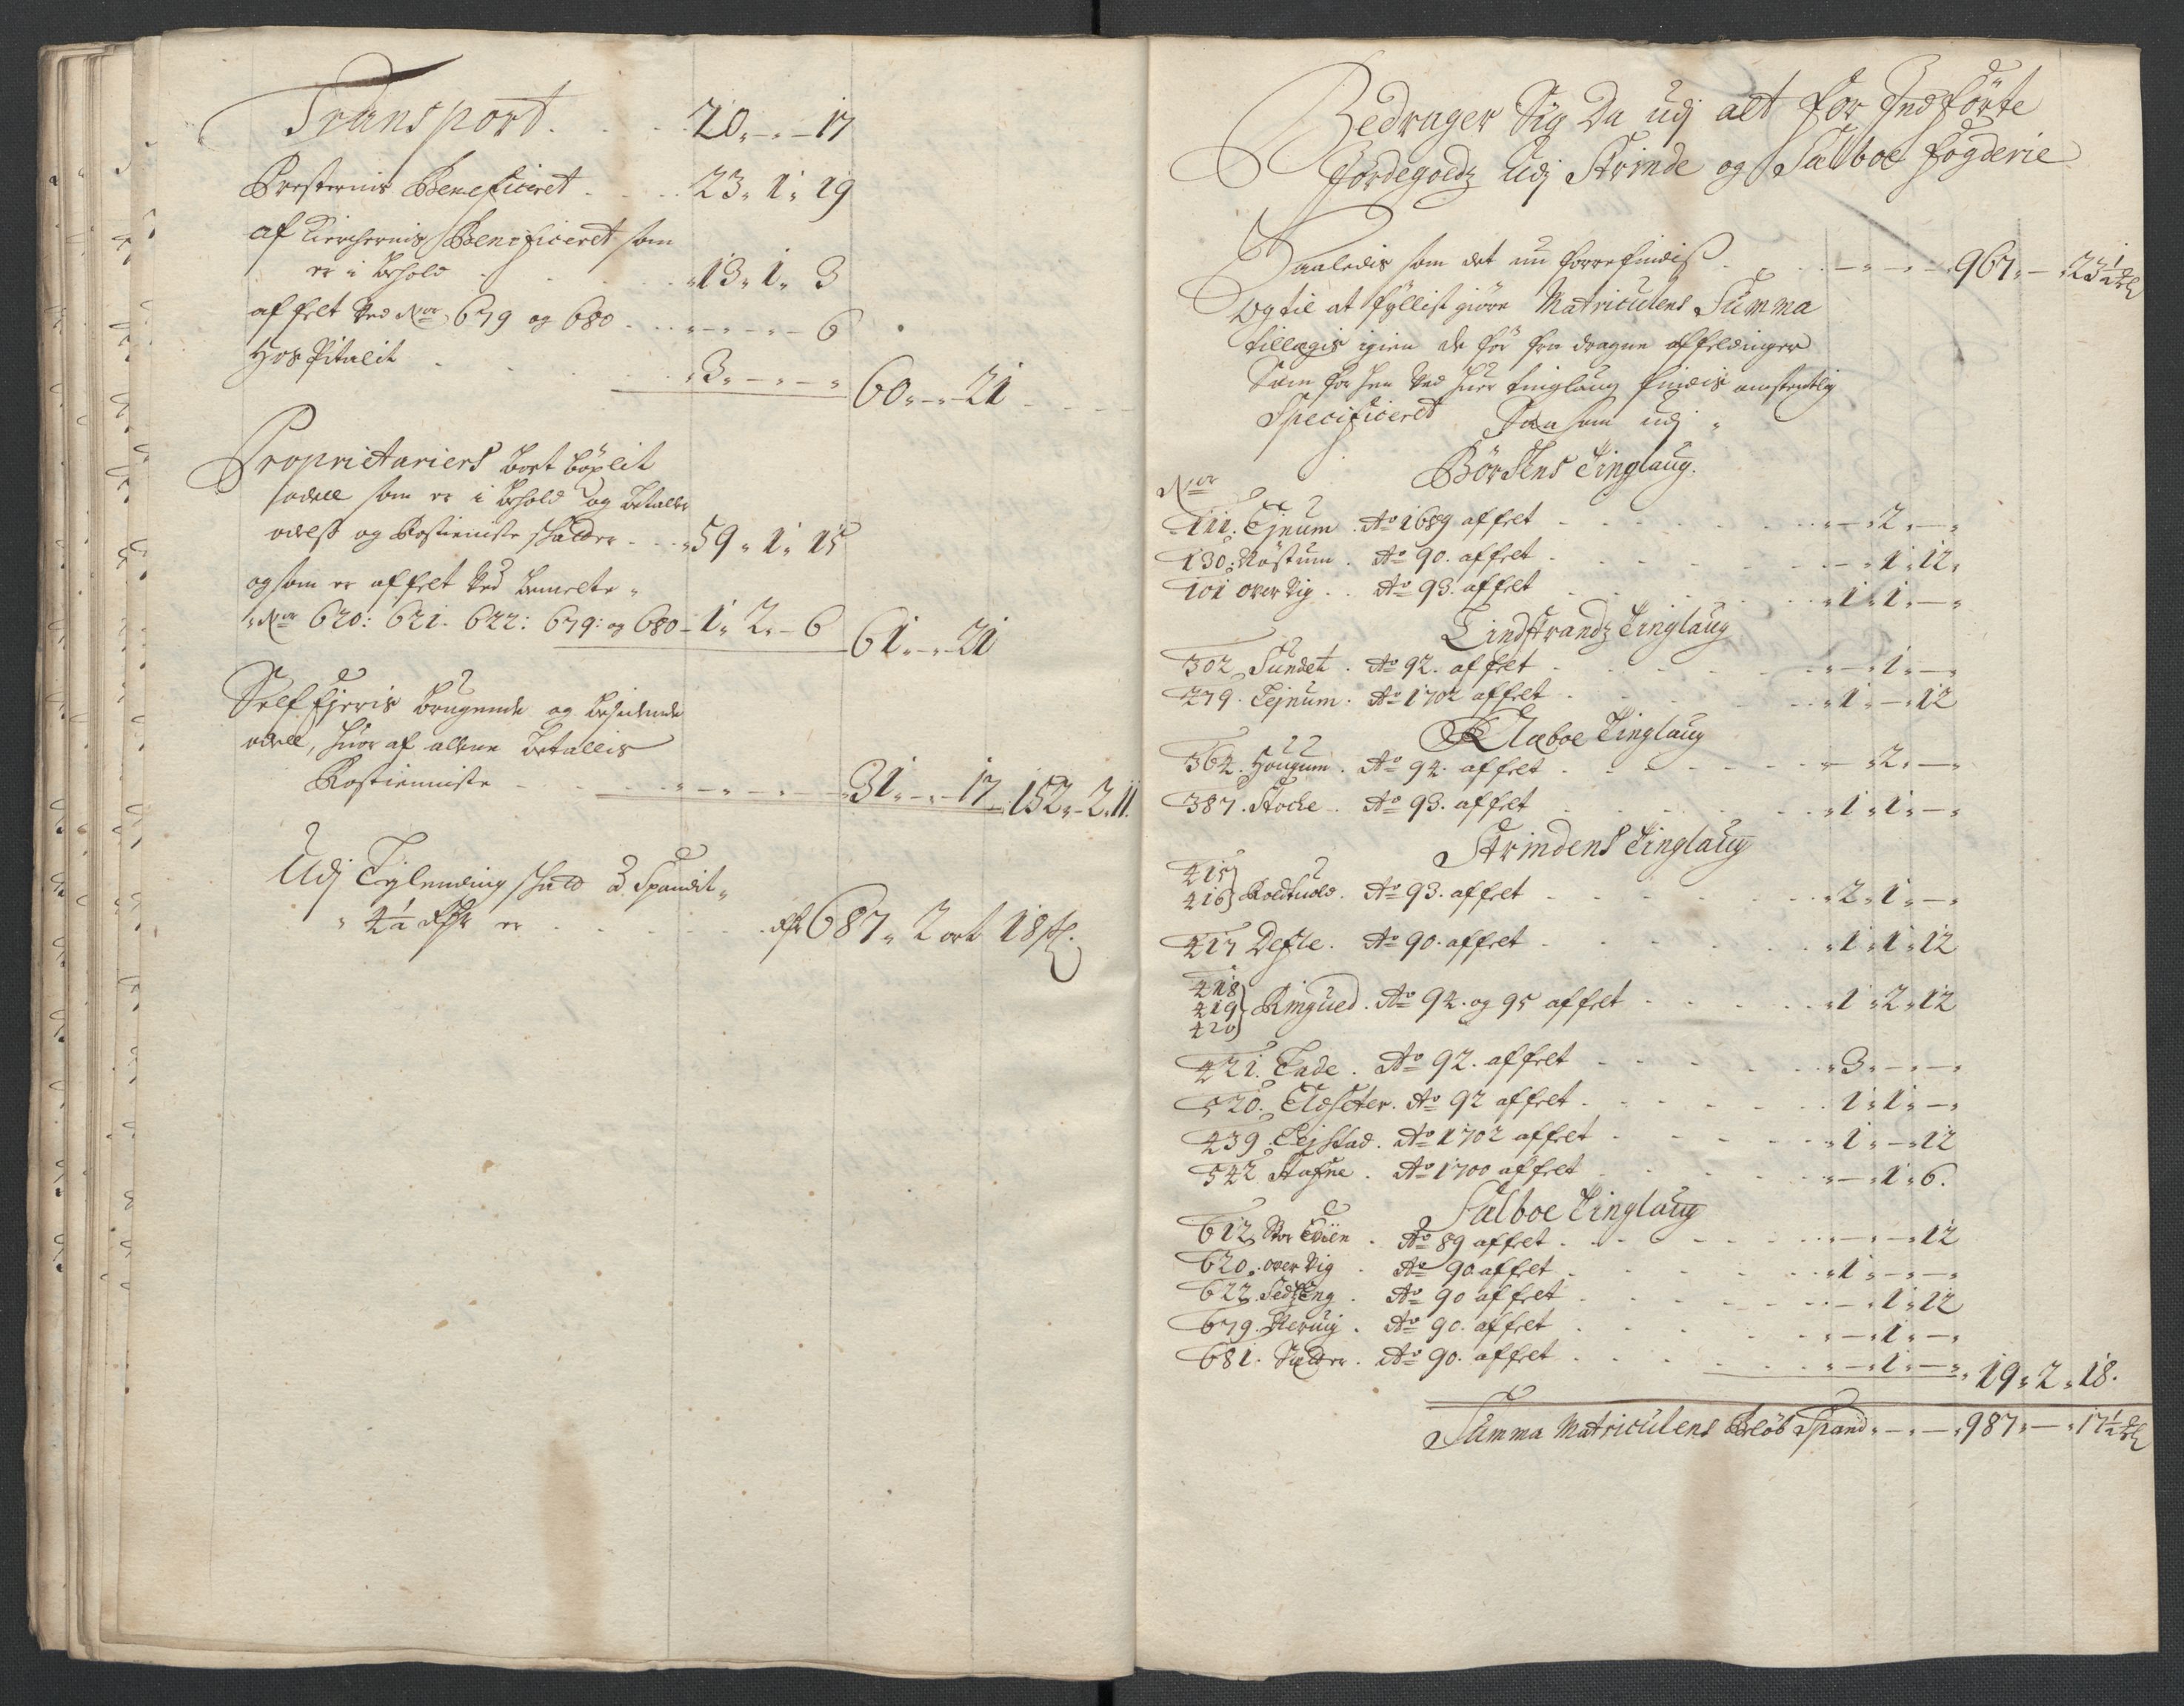 Transport . . . 20 „ – „ – 17
Presternis Beneficeret . . . 23 „ 1 „ 19
af Kierchernis Beneficeret som
er i behold . . . 13 „ 1 „ 3
affelt ved No 679 og 680 . . . „ – „ – „ – 6
Hospitalit . . . „ 3 „ – „ – „ 60 „ – „ 21
Proprietariers bort böxlit
odell som er i behold og betaller
odels og Rostieniste schatter . . . „ 59 „ 1 „ 15
og som er affelt ved bemelte „
No 620: 621. 622: 679: og 680 – 1 „ 2 „ – 6 61 „ – „ 21
Self Ejeris brugende og besidende
odell, huor af allene betallis
Rostieniste . . . 31 „ – „ 17 152 „ – 2 „ 11
Udj Tylending schatt à Spandit „
„ 4½ ort er . . . Rdr 687 „ 2 ort 18 s
Bedrager Sig Da udj alt for Indførte
Jordegodz Udj Strinde og Sælboe fogderie
Saaledis som det nu forrefindis . . . 967 „ – „ 23½
Og til at fyllist giøre Matriculens Summa
tillegis igien de før fra dragne affeldinger
Som for hen ved huer tinglaug findis omstendlig
Specificeret Saa som udj „
Børsens Tinglaug.
No
111. Ejnum. Ao 1689 affelt . . . „ – „ 2 „ – „
130. Røstum. Ao 90. affelt . . . „ – „ 1 „ 12 „
101 over Vig . . Ao 93. affelt . . . „ 1 „ 1 „ – „
Lindstrandz Tinglaug
302 Sundet. Ao 92. affelt . . . „ – „ 1 „ – „
279. Lejnum. Ao 1702 affelt . . . „ 1 „ – „ 12
Klæboe Tinglaug
364. Hougum. Ao 94. affelt . . . „ – „ 2 „ – „
387. Stoche. Ao 93. affelt . . . „ 1 „ 1 „ – „
Strindens Tinglaug
415
416 Roldtuold. Ao 93. affelt . . . „ 2 „ 1 „ – „
417 Defle. Ao 90. affelt . . . „ 1 „ 1 „ 12
418
419 Ringued. Ao 94. og 95 affelt . . . „ 1 „ 2 „ 12
420
421. Lade. Ao 92. affelt . . . „ 3 „ – „ – „
520. Eldseter. Ao 92 affelt . . . 1 „ 1 „ – „
439. Lejstad. Ao 1702 affelt . . . „ 1 „ – „ 12
542. Stafne. Ao 1700 affelt . . . „ – „ 1 „ 6.
Sælboe Tinglaug
612 Stor Evien. Ao 89 affelt . . . „ – „ – „ 12
620. over Vig. Ao 90 affelt . . . „ 1 „ – „ – „
622. Sedzeng. Ao 90 affelt . . . „ – „ 1 „ 12
679. Neruig. Ao 90. affelt . . . „ – „ 1 „ – „
681. Ao 90. affelt . . . „ – „ 1 „ – „ 19 „ 2 „ 18.
Summa Matriculens Beløb Spand „ – „ – „ 987 „ – „ 17½